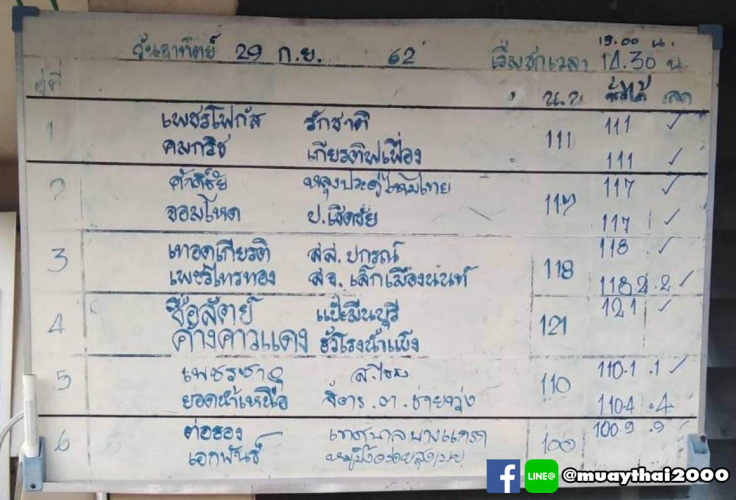 วันอาทิตย์ 29 ก.ย. 62 เริ่มชกเวลา 14.30 น.
15.00 น.
คู่ที่ น.น. ชั่งได้ ลด
1 เพชรโฟกัส รักชาติ 111 111 ✓
คมกริช เกียรติเฟื่อง 111 ✓
2 ศักดิ์ชัย หลุงประตูไม้ไทย 117 117 ✓
จอมโหด ป.เชิดชัย 117 ✓
3 เทอดเกียรติ สส.ปกรณ์ 118 118 ✓
เพชรไทรทอง สจ.เล็กเมืองนนท์ 118.2 .2 ✓
4 ซื่อสัตย์ แป๊ะมีนบุรี 121 121 ✓
ค้างคาวแดง รั้วโรงน้ำแข็ง
5 110 110.1 .1 ✓
ยอดน้ำเหนือ 110.4 .4
6 ต่อรอง เทศบาล 100 100.9 .9 ✓
เอกพันธ์
f LINE@ @muaythai2000